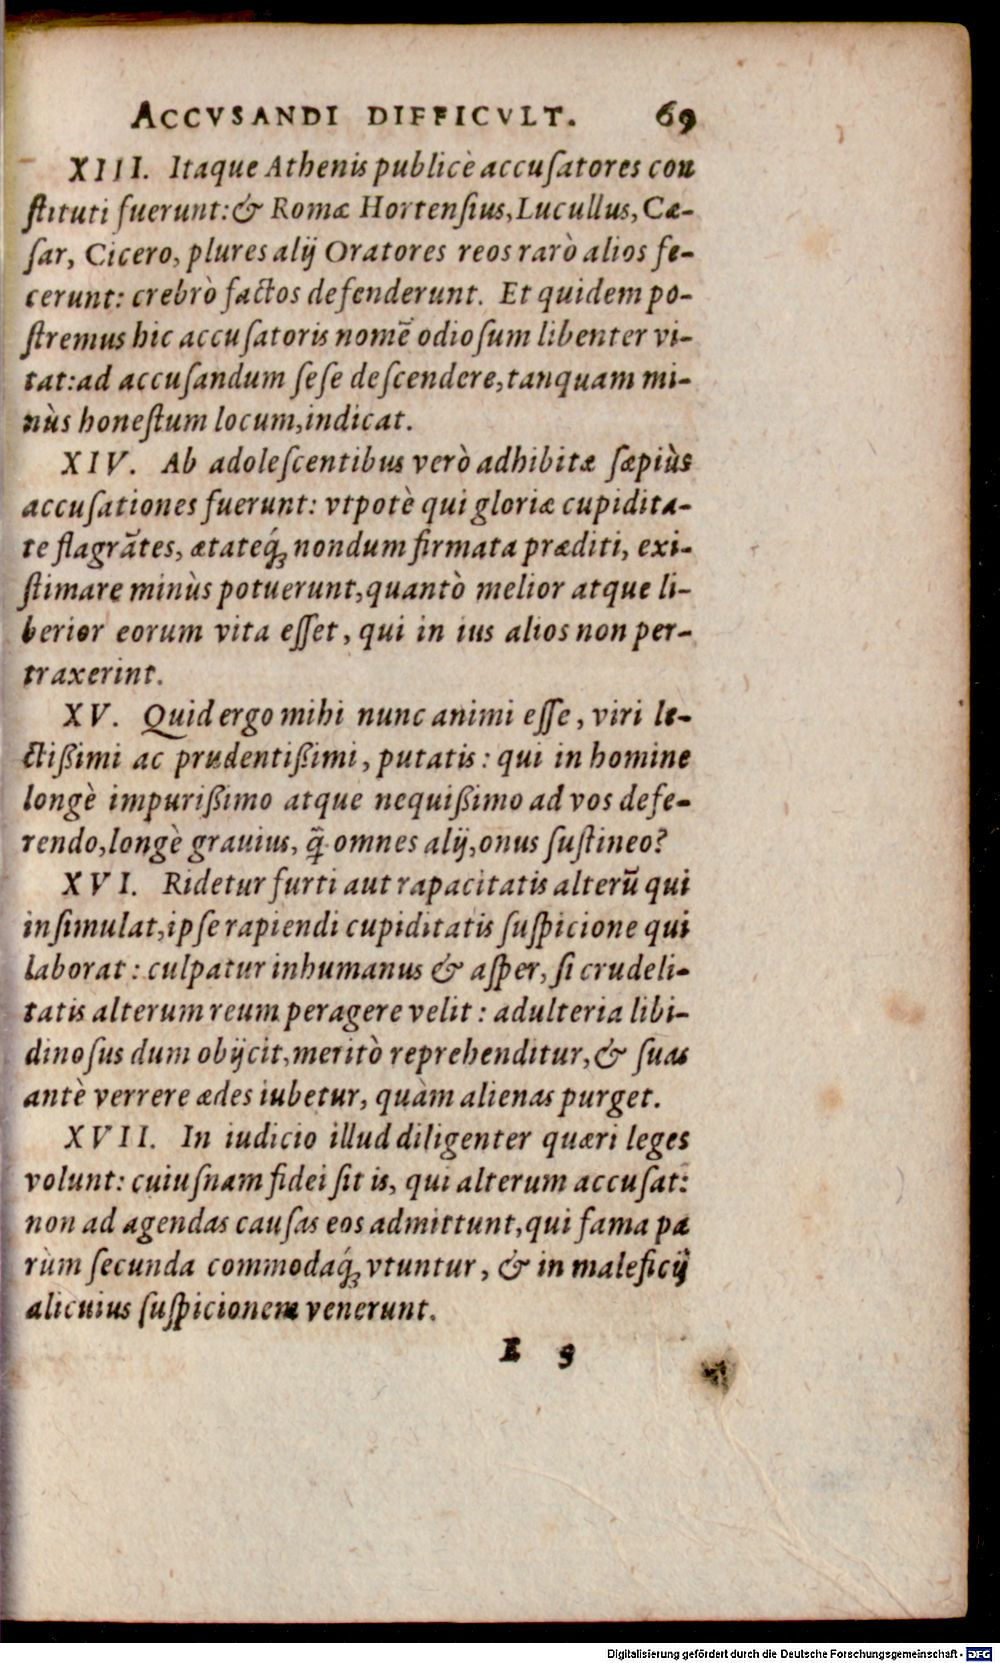 ACCVSANDI DIFFICVLT. 69
XIII. Itaque Athenis publicè accuſatores con
ſtituti fuerunt: & Romæ Hortenſius, Lucullus, Cæ-
ſar, Cicero, plures alij Oratores reos rarò alios fe-
cerunt: crebrò factos defenderunt. Et quidem po-
ſtremus hic accuſatoris nomē odioſum libenter vi-
tat: ad accuſandum ſeſe deſcendere, tanquam mi-
nùs honeſtum locum, indicat.
XIV. Ab adoleſcentibus verò adhibitæ ſæpiùs
accuſationes fuerunt: vtpotè qui gloriæ cupidita-
te flagrātes, ætateq́ꝫ nondum firmata præditi, exi-
ſtimare minùs potuerunt, quantò melior atque li-
berior eorum vita eſſet, qui in ius alios non per-
traxerint.
XV. Quid ergo mihi nunc animi eſſe, viri le-
ctißimi ac prudentißimi, putatis: qui in homine
longè impurißimo atque nequißimo ad vos defe-
rendo, longè grauius, q̄ omnes alij, onus ſuſtineo?
XVI. Ridetur furti aut rapacitatis alterū qui
inſimulat, ipſe rapiendi cupiditatis ſuſpicione qui
laborat: culpatur inhumanus & aſper, ſi crudeli-
tatis alterum reum peragere velit: adulteria libi-
dinoſus dum obijcit, meritò reprehenditur, & ſuas
antè verrere ædes iubetur, quàm alienas purget.
XVII. In iudicio illud diligenter quæri leges
volunt: cuiuſnam fidei ſit is, qui alterum accuſat:
non ad agendas cauſas eos admittunt, qui fama pa
rùm ſecunda commodaq́ꝫ vtuntur, & in maleficij
alicuius ſuſpicionem venerunt.
E 5
Digitalisierung gefördert durch die Deutsche Forschungsgemeinschaft - DFG